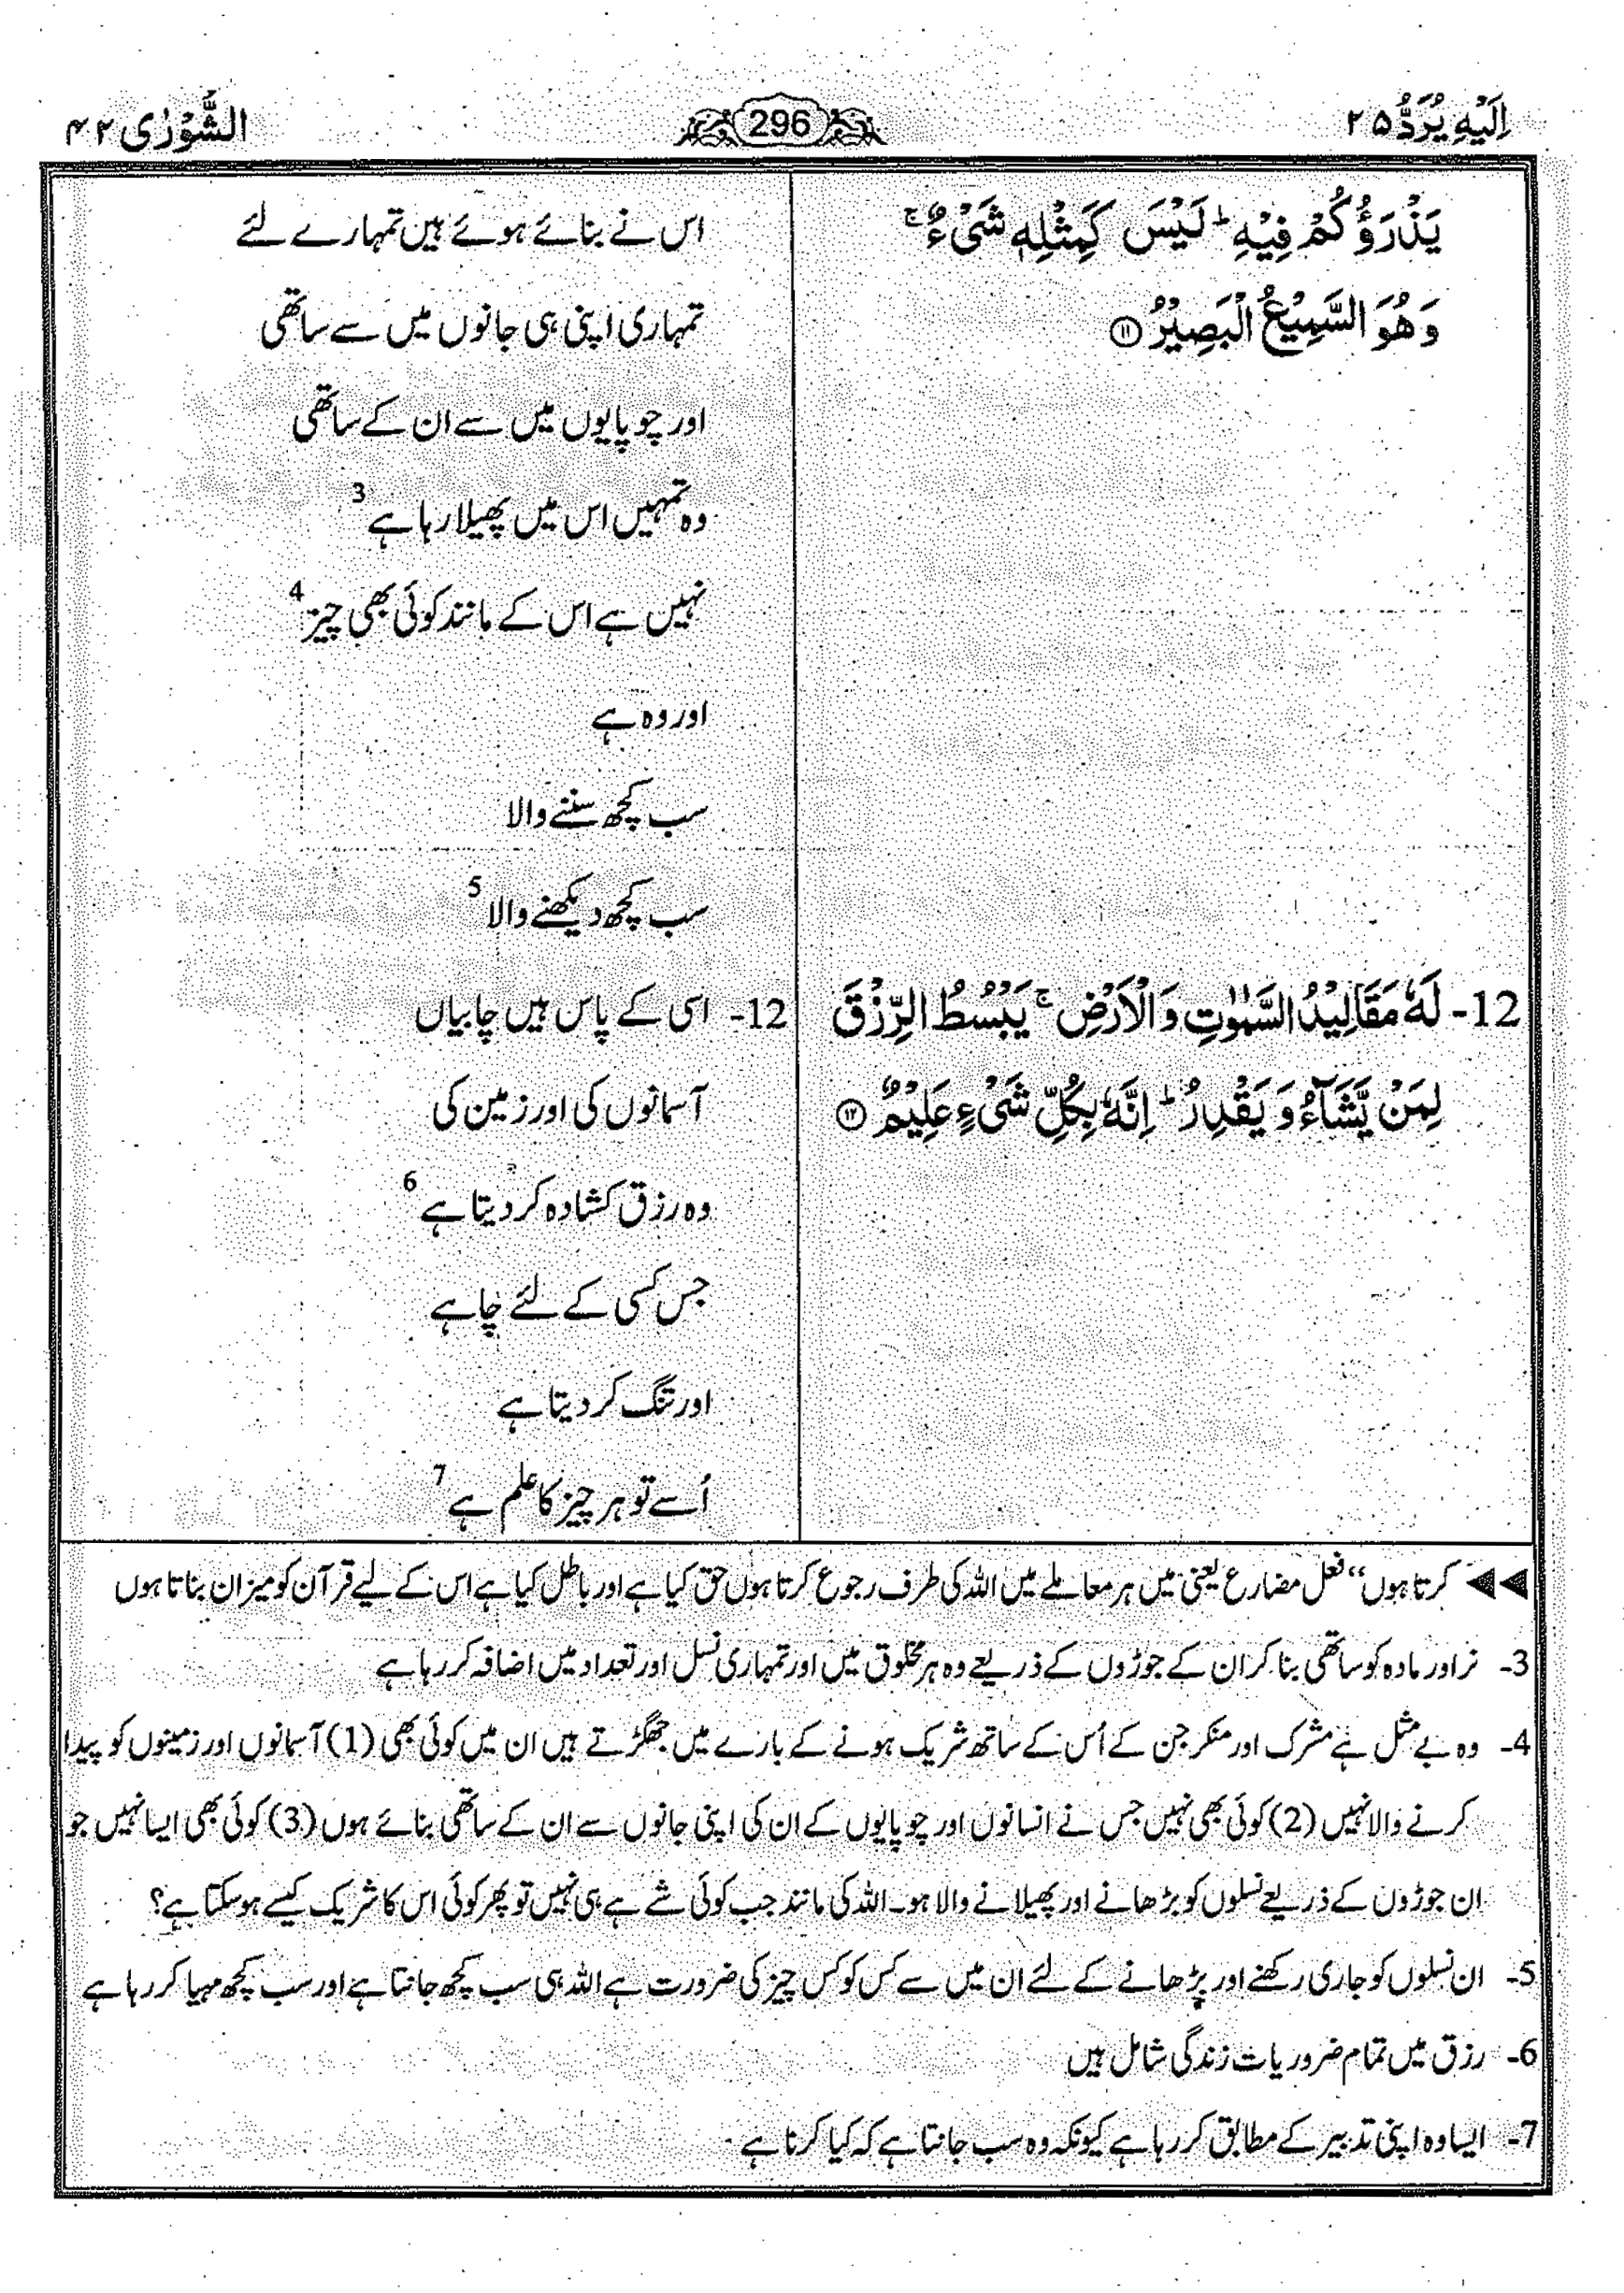 اِلَیْهِ یُرَدُّ ۲۵
296
الشُّوْرٰی ۴۲
یَذْرَؤُكُمْ فِیْهِ ؕ لَیْسَ كَمِثْلِهٖ شَیْءٌ ۚ
وَ هُوَ السَّمِیْعُ الْبَصِیْرُ ۱۱
اس نے بنائے ہوئے ہیں تمہارے لئے
تمہاری اپنی ہی جانوں میں سے ساتھی
اور چوپایوں میں سے ان کے ساتھی
وہ تمہیں اس میں پھیلا رہا ہے 3
نہیں ہے اس کے مانند کوئی بھی چیز 4
اور وہ ہے
سب کچھ سننے والا
سب کچھ دیکھنے والا 5
12- لَهٗ مَقَالِیْدُ السَّمٰوٰتِ وَ الْاَرْضِ ۚ یَبْسُطُ الرِّزْقَ
لِمَنْ یَّشَآءُ وَ یَقْدِرُ ؕ اِنَّهٗ بِكُلِّ شَیْءٍ عَلِیْمٌ ۱۲
12- اسی کے پاس ہیں چابیاں
آسمانوں کی اور زمین کی
وہ رزق کشادہ کر دیتا ہے 6
جس کسی کے لئے چاہے
اور تنگ کر دیتا ہے
اُسے تو ہر چیز کا علم ہے 7
◄◄ کرتا ہوں‘‘ فعل مضارع یعنی میں ہر معاملے میں اللہ کی طرف رجوع کرتا ہوں حق کیا ہے اور باطل کیا ہے اس کے لیے قرآن کو میزان بناتا ہوں
3- نر اور مادہ کو ساتھی بنا کر ان کے جوڑوں کے ذریعے وہ ہر مخلوق میں اور تمہاری نسل اور تعداد میں اضافہ کر رہا ہے
4- وہ بے مثل ہے مشرک اور منکر جن کے اُس کے ساتھ شریک ہونے کے بارے میں جھگڑتے ہیں ان میں کوئی بھی (1) آسمانوں اور زمینوں کو پیدا
کرنے والا نہیں (2) کوئی بھی نہیں جس نے انسانوں اور چوپایوں کے ان کی اپنی جانوں سے ان کے ساتھی بنائے ہوں (3) کوئی بھی ایسا نہیں جو
ان جوڑوں کے ذریعے نسلوں کو بڑھانے اور پھیلانے والا ہو۔ اللہ کی مانند جب کوئی شے ہے ہی نہیں تو پھر کوئی اس کا شریک کیسے ہو سکتا ہے؟
5- ان نسلوں کو جاری رکھنے اور بڑھانے کے لئے ان میں سے کس کو کس چیز کی ضرورت ہے اللہ ہی سب کچھ جانتا ہے اور سب کچھ مہیا کر رہا ہے
6- رزق میں تمام ضروریات زندگی شامل ہیں
7- ایسا وہ اپنی تدبیر کے مطابق کر رہا ہے کیونکہ وہ سب جانتا ہے کہ کیا کرنا ہے